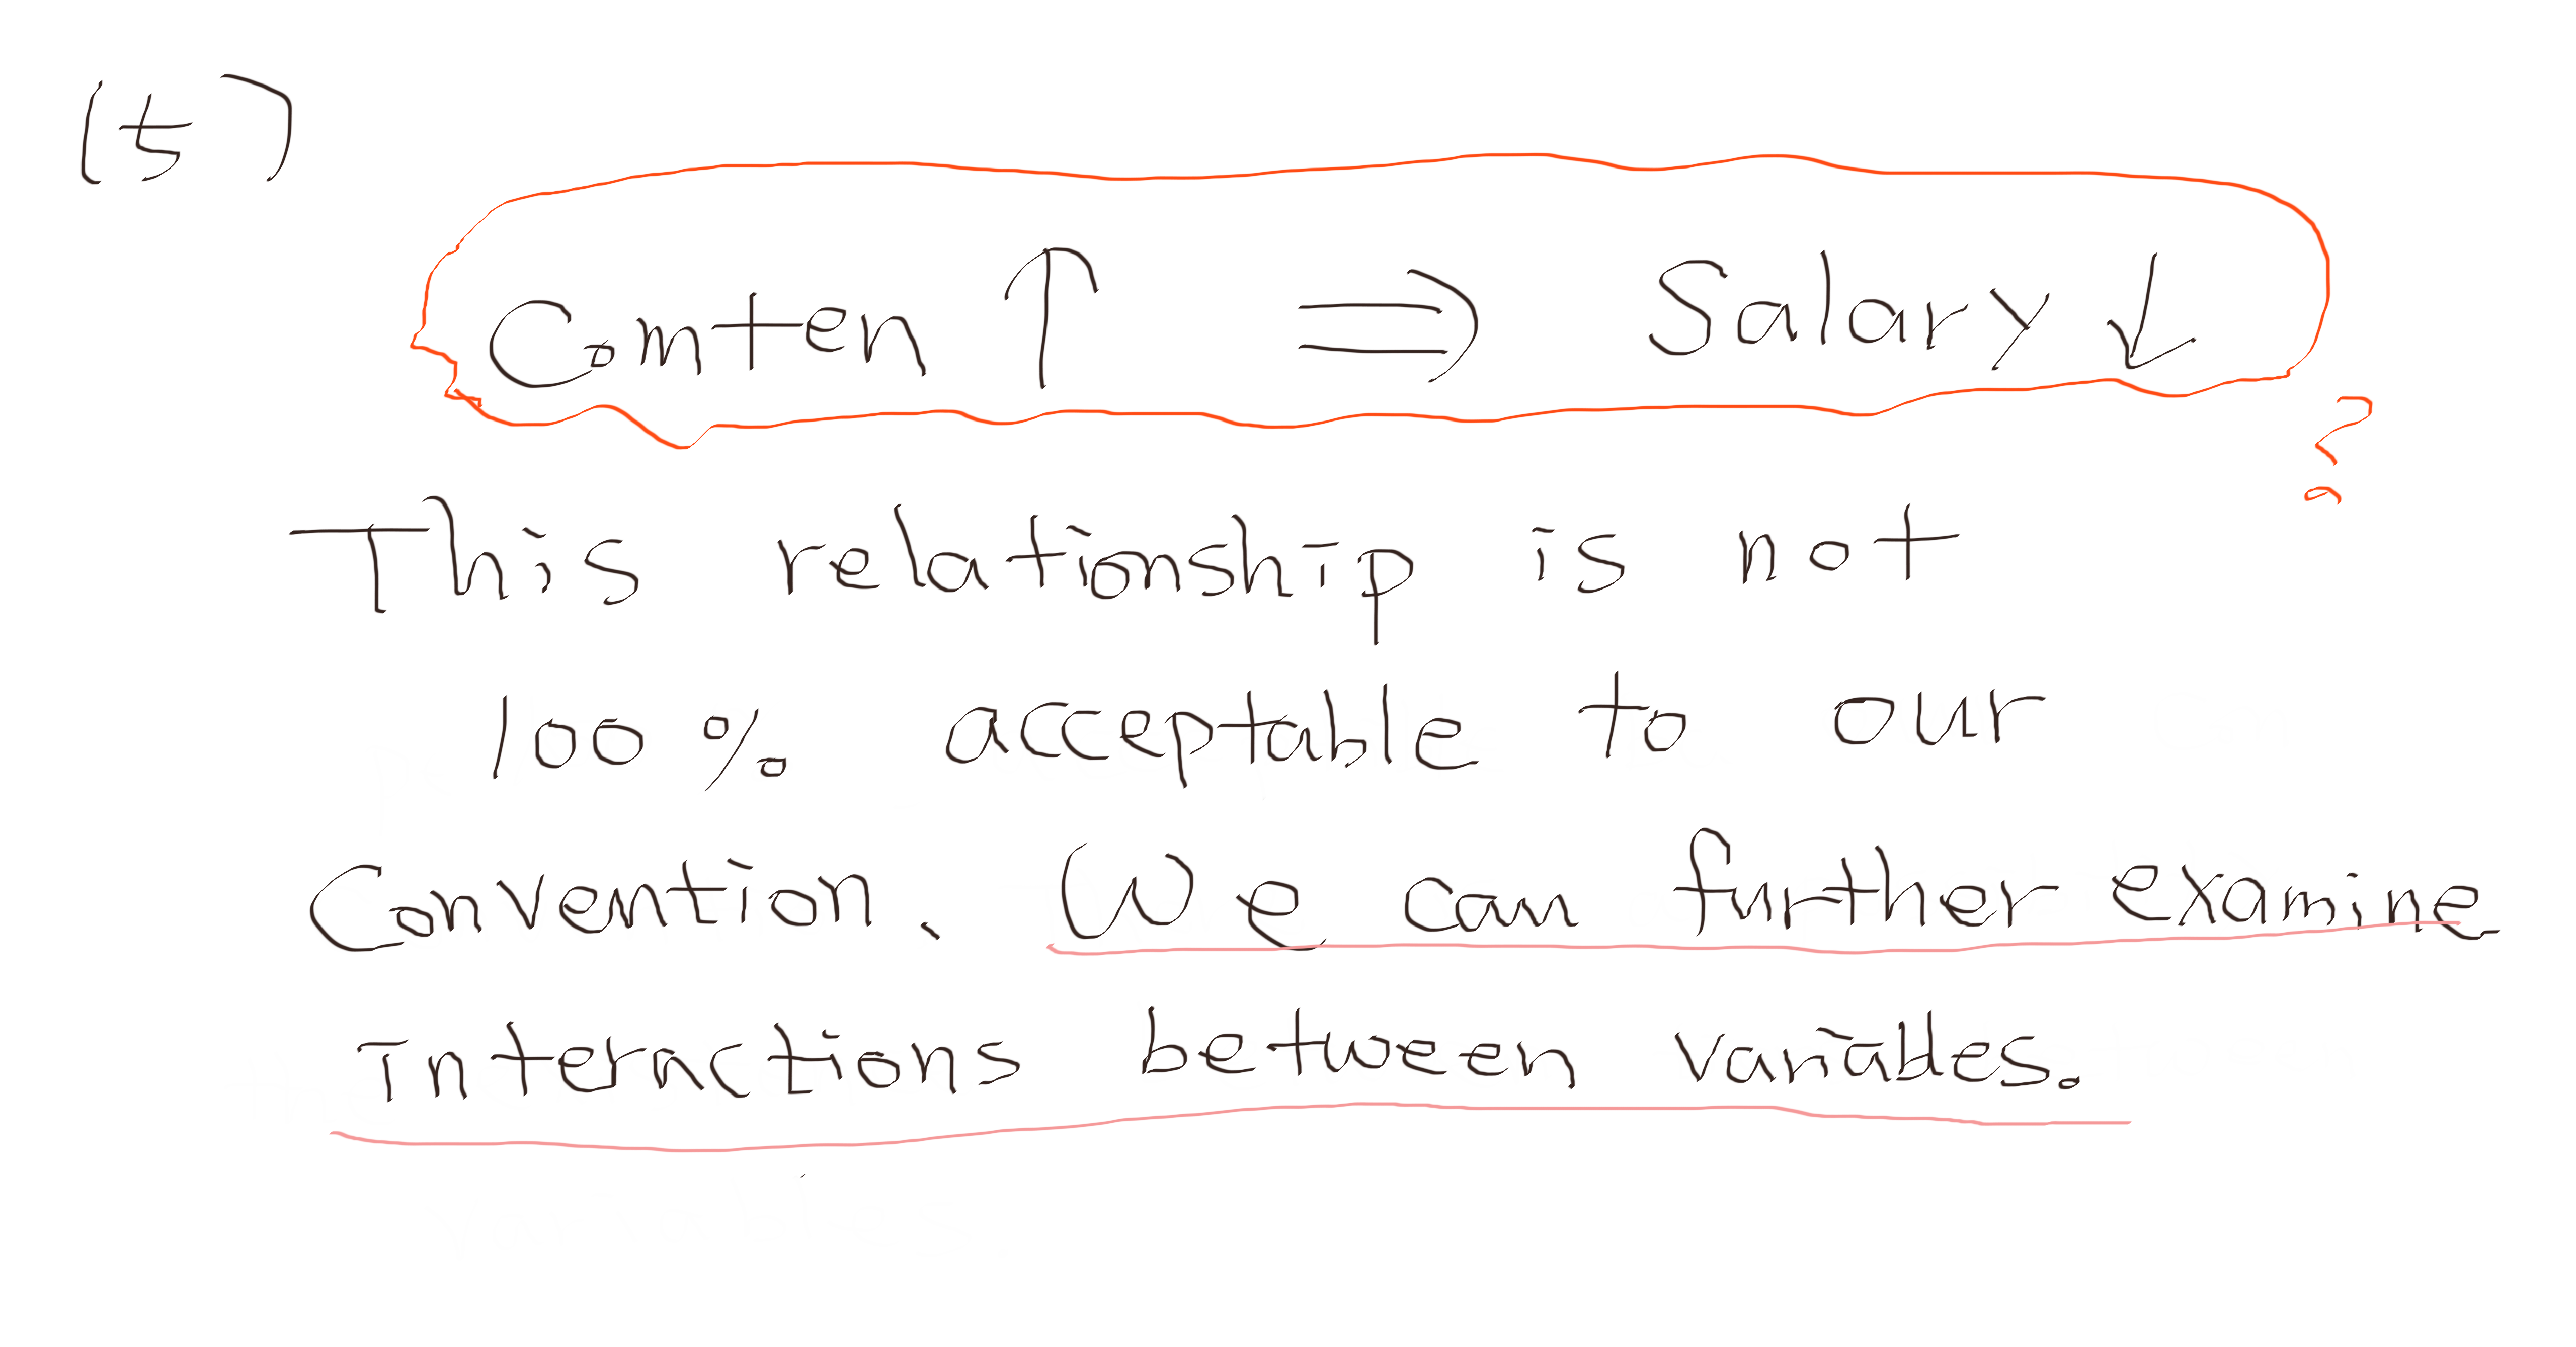 (5)
Comten ↑ ⇒ Salary ↓
?
This relationship is not
100% acceptable to our
Convention. We can further examine
interactions between variables.